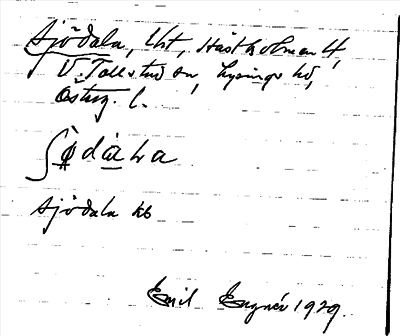 Sjödala, lht, Hästholmen 4,
V. Tollstad sn, Lysings hd,
Österg. l.
ʃǿdàla
Sjödala kb
Emil 1929.